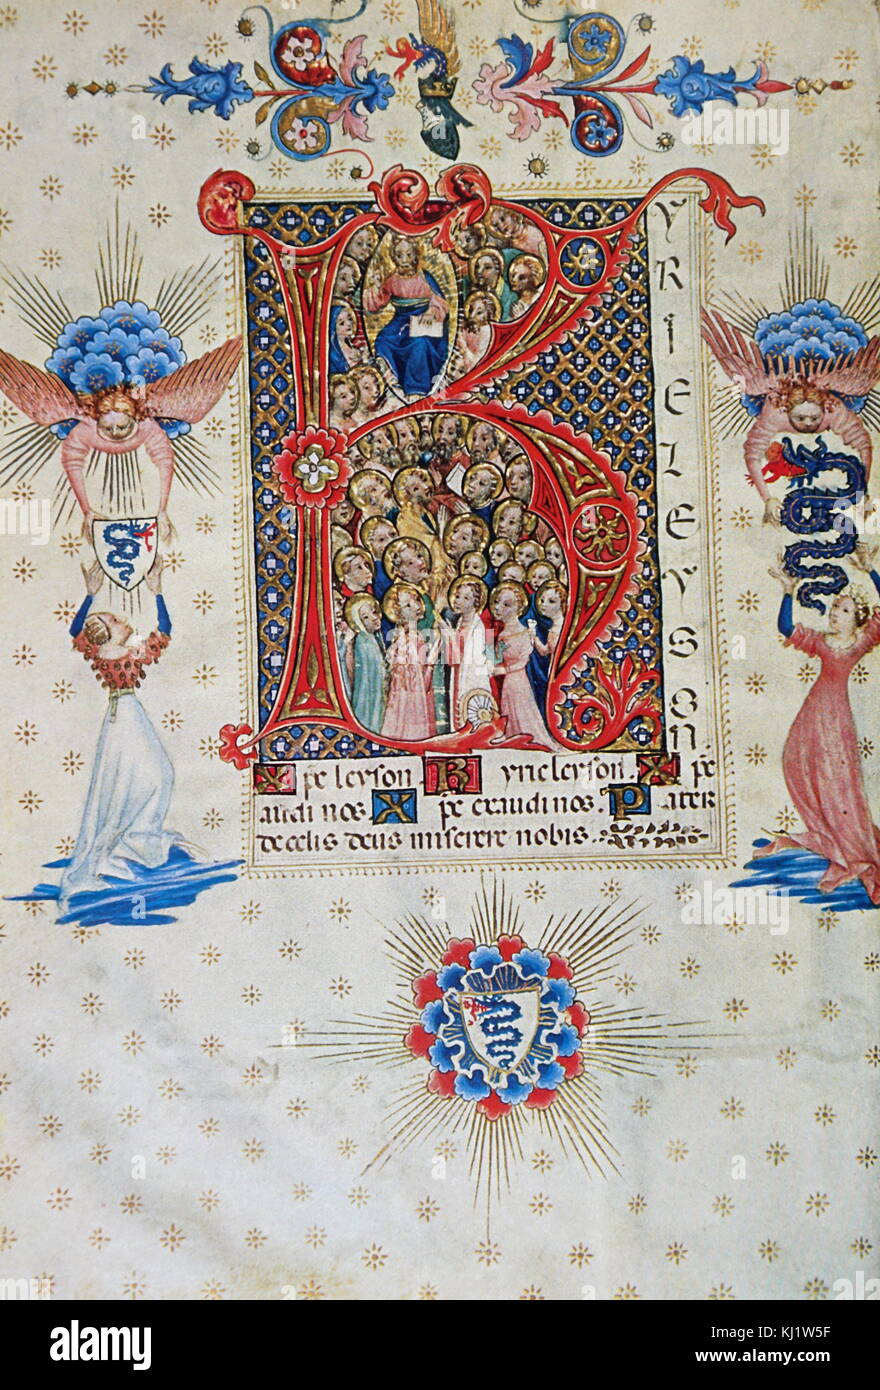 K
YRIELEYSON
Xp̄e leyson Kyrieleyson. Xp̄e
audi nos Xp̄e exaudi nos. Pater
de celis deus miserere nobis.
alamy stock photo
KJ1W5F
www.alamy.com